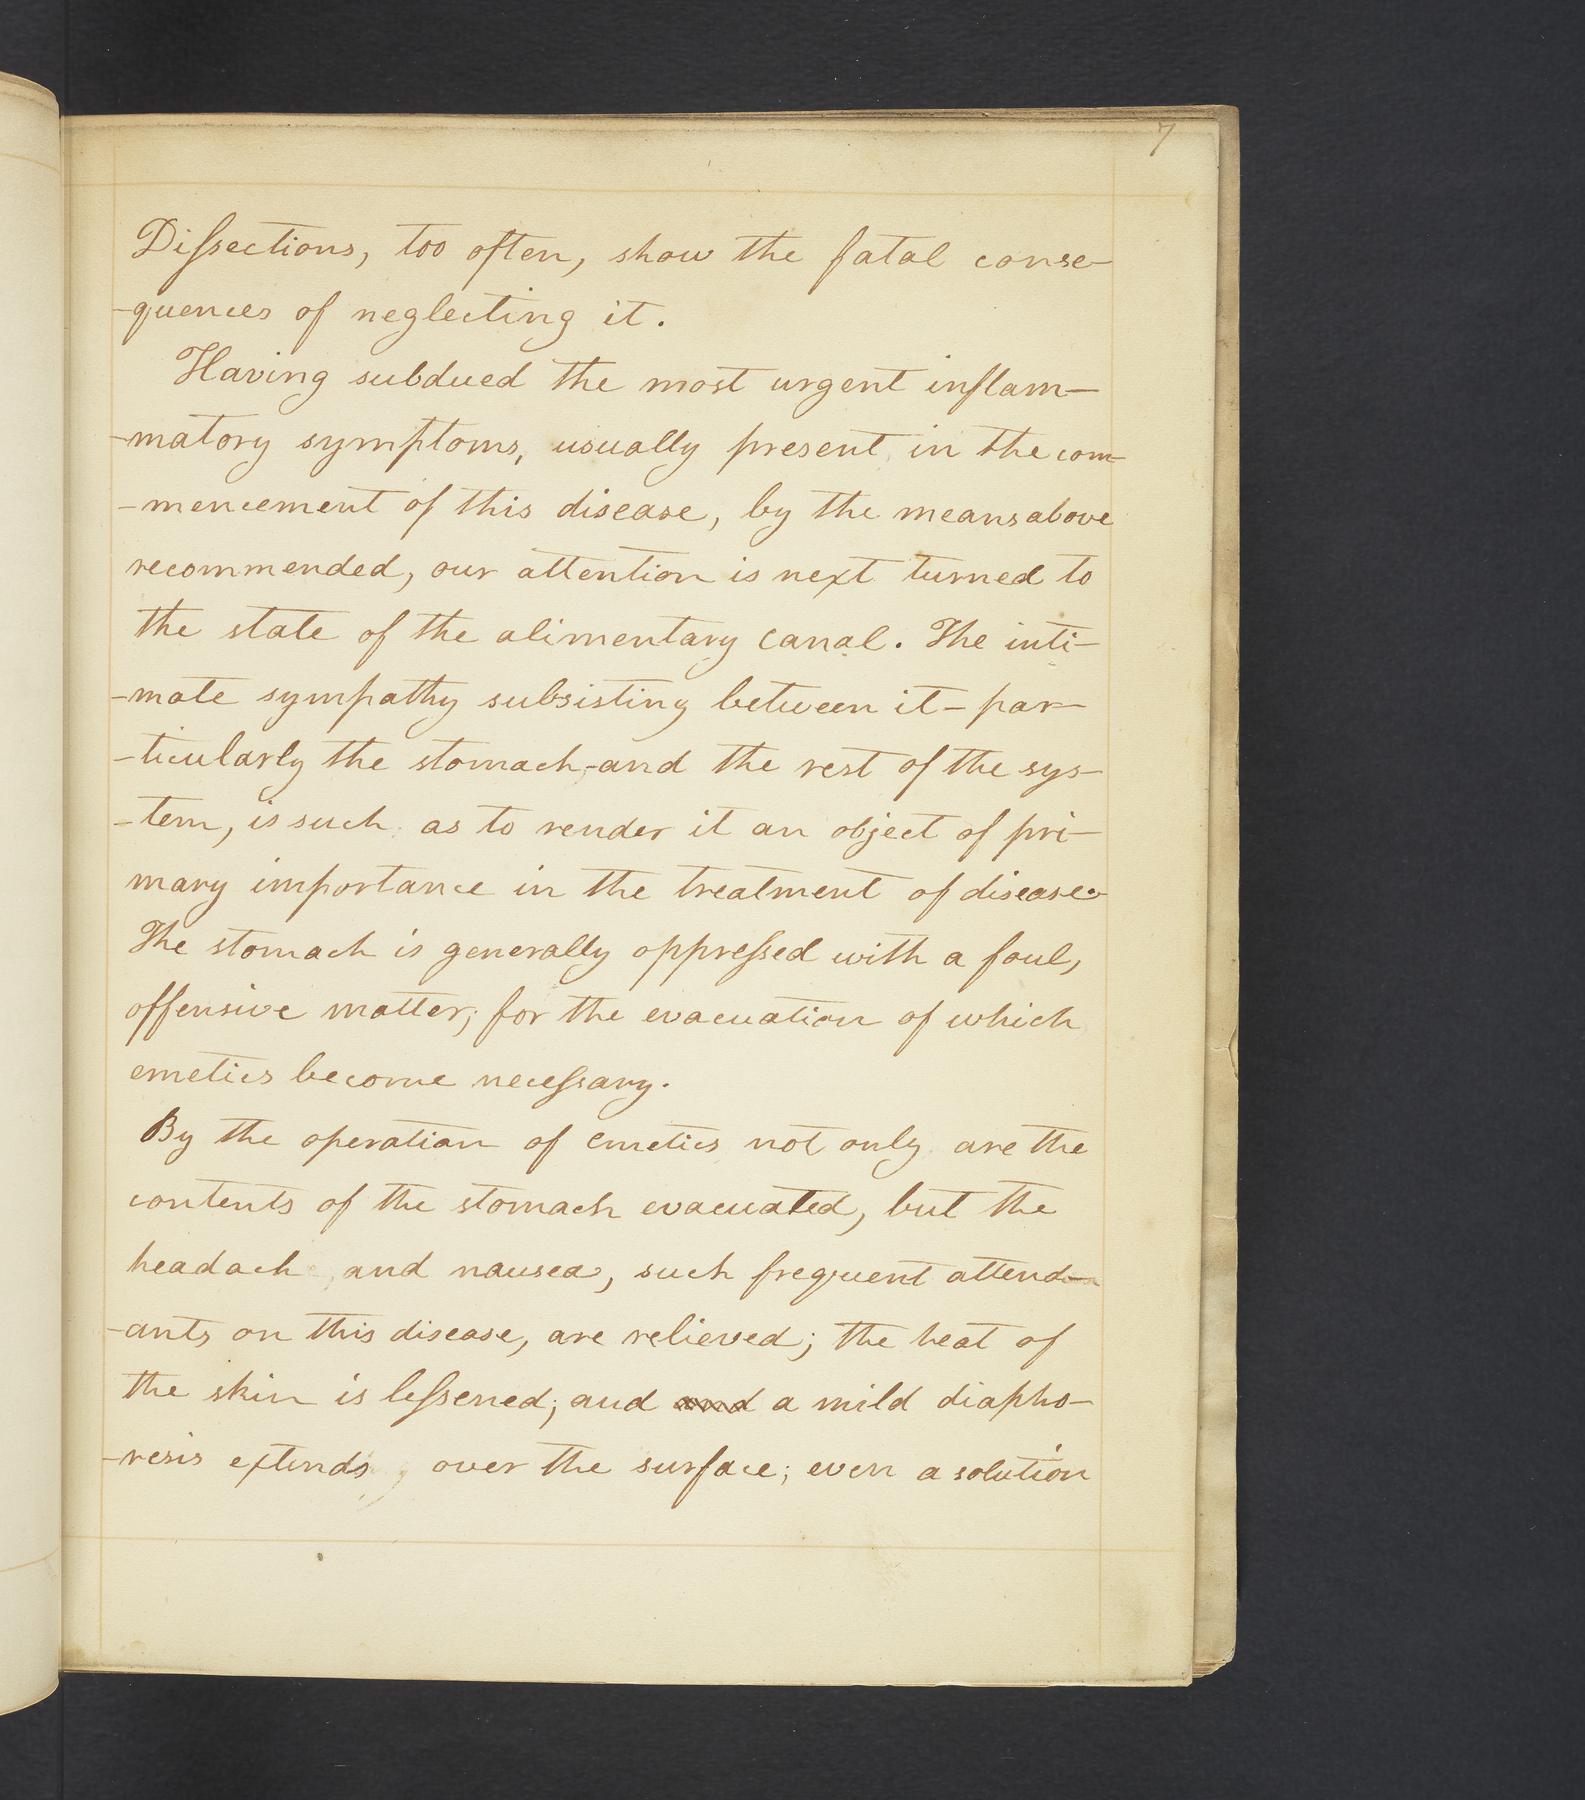 7
Diſsections, too often, show the fatal conse-
-quences of neglecting it.
Having subdued the most urgent inflam-
-matory symptoms, usually present in the com-
-mencement of this disease, by the means above
recommended, our attention is next turned to
the state of the alimentary canal. The inti-
-mate sympathy subsisting between it - par-
-ticularly the stomach, - and the rest of the sys-
-tem, is such as to render it an object of pri-
mary importance in the treatment of disease.
The stomach is generally oppreſsed with a foul,
offensive matter; for the evacuation of which
emetics become neceſsary.
By the operation of emetics not only are the
contents of the stomach evacuated, but the
headach, and nausea, such frequent attend-
-ants on this disease, are relieved; the heat of
the skin is leſsened; and and a mild diapho-
-resis extends over the surface; even a solution